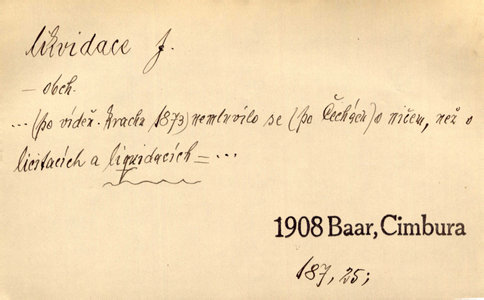 likvidace f.
— obch.
... (po vídeň. krachu 1873) nemluvilo se (po Čechách) o ničem, než o
licitacích a liquidacích = ...
1908 Baar, Cimbura
187, 25;